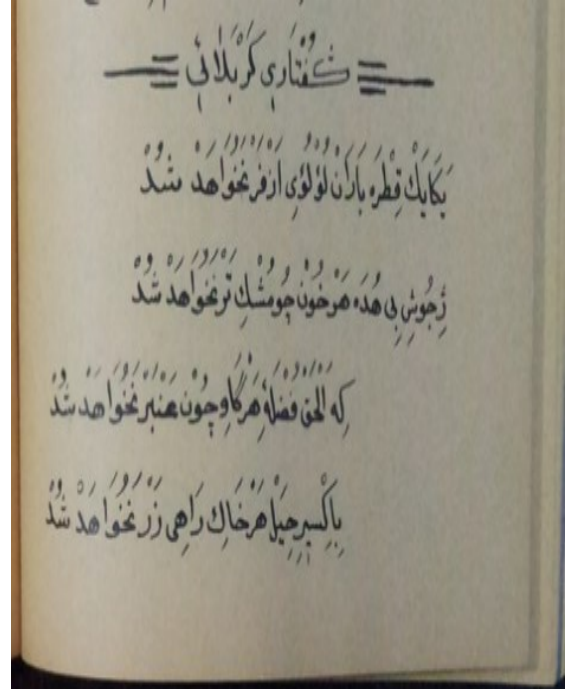 گفتاری کربلائی
یَکایَک قِطْرَه بارَانْ لُؤْلُؤیِ ازفر نَخواهَدْ شُدْ
زِجُوشِ بِی هُدَه هَرْ خُونْ چُو مِشْكِ تَرْ نَخواهَدْ شُدْ
کِه الحق فَضْلَهٔ هَرْ گاوِ چُونْ عَنْبَر نَخْوَاهَدْ شُدْ
بِاِکْسِیرِ حِیَلْ هَرْ خَاك رَاهِی زَرْ نَخْوَاهَدْ شُدْ